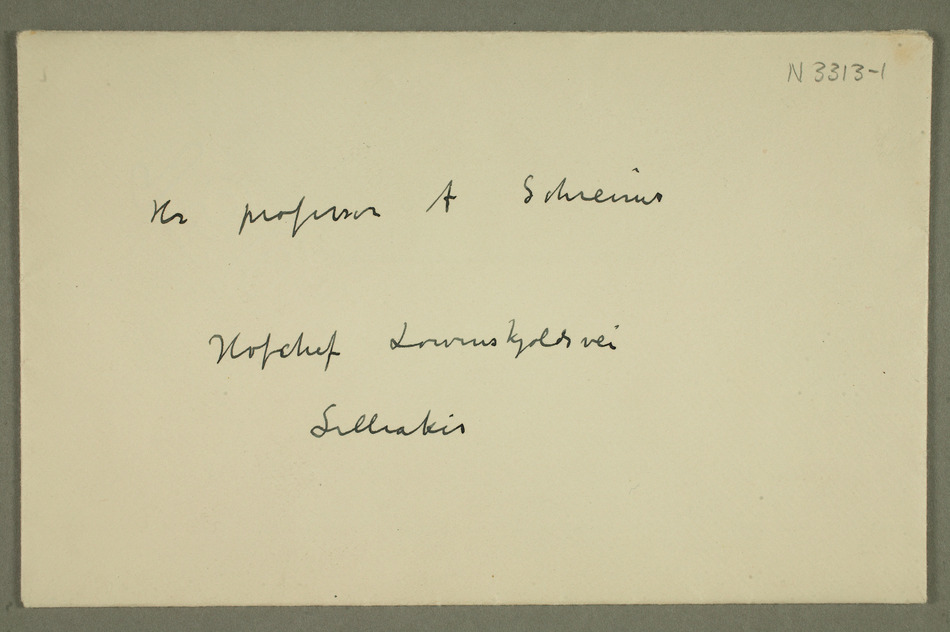 N 3313-1
Hr professor A Schreiner
Hofchef Lovenskjoldsvei
Lilleaker